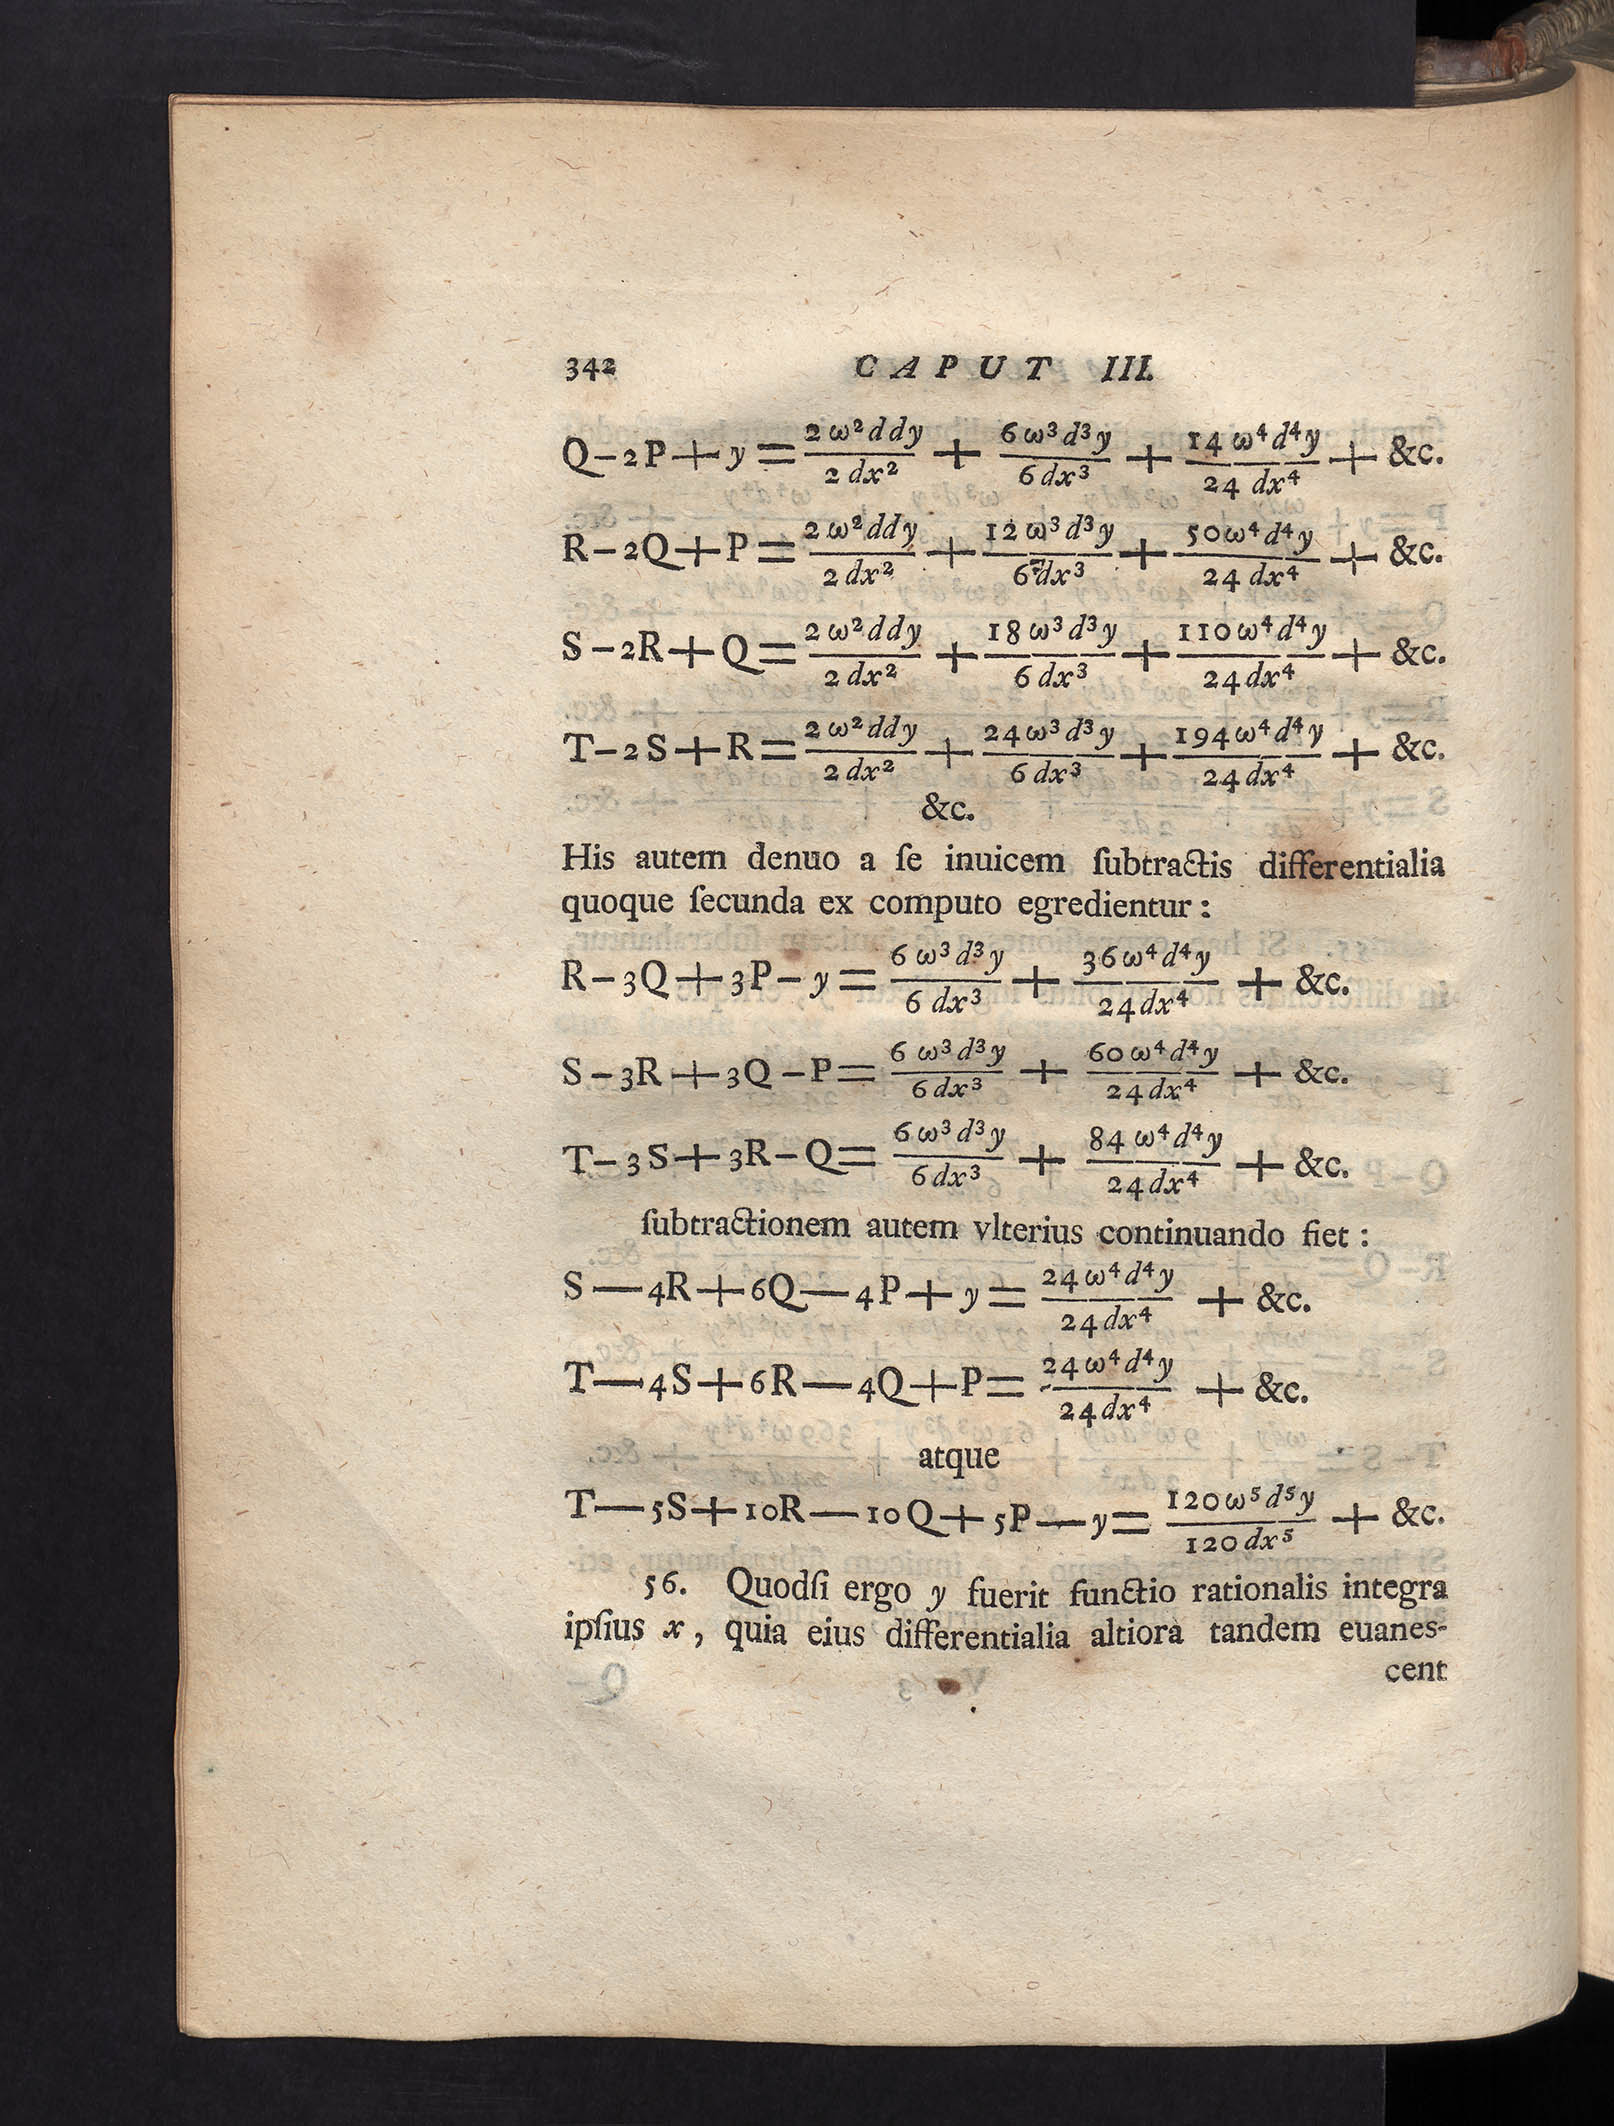 342 CAPUT III.
Q−2P+y = 2ω²ddy/2dx² + 6ω³d³y/6dx³ + 14ω⁴d⁴y/24dx⁴ + &c.
R−2Q+P = 2ω²ddy/2dx² + 12ω³d³y/6dx³ + 50ω⁴d⁴y/24dx⁴ + &c.
S−2R+Q = 2ω²ddy/2dx² + 18ω³d³y/6dx³ + 110ω⁴d⁴y/24dx⁴ + &c.
T−2S+R = 2ω²ddy/2dx² + 24ω³d³y/6dx³ + 194ω⁴d⁴y/24dx⁴ + &c.
&c.
His autem denuo a ſe inuicem ſubtractis differentialia
quoque ſecunda ex computo egredientur:
R−3Q+3P−y = 6ω³d³y/6dx³ + 36ω⁴d⁴y/24dx⁴ + &c.
S−3R+3Q−P = 6ω³d³y/6dx³ + 60ω⁴d⁴y/24dx⁴ + &c.
T−3S+3R−Q = 6ω³d³y/6dx³ + 84ω⁴d⁴y/24dx⁴ + &c.
ſubtractionem autem vlterius continuando fiet:
S—4R+6Q—4P+y = 24ω⁴d⁴y/24dx⁴ + &c.
T—4S+6R—4Q+P = 24ω⁴d⁴y/24dx⁴ + &c.
atque
T—5S+10R—10Q+5P—y = 120ω⁵d⁵y/120dx⁵ + &c.
56. Quodſi ergo y fuerit functio rationalis integra
ipſius x, quia eius differentialia altiora tandem euanes-
cent